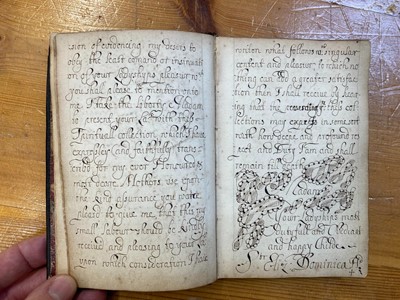 sion of evidencing my desires to
obey the least comand or insinuati
on of your Ladyships pleasure wch
you shall please to mention unto
me. I take the Liberty Madam
to present your La:p with this
spirituall collection, wch I have
examplified and faithfully trans=
cribd for my ever Honoured &
most deare Mothers use upon
the kind assurance you were
pleased to give me, that this my
small Labour should be kindly
received and pleasing to your La:p
upon which consideration I have
vention what followes wth singular
content and pleasure, to reach no
thing can add a greater satisfac
tion then I shall receive by hea
ring that the this col
lections may express in some sort
with how deepe and profound res
pect and Duty I am and shall
remain till death
Madam
Your Ladyships most
dutyfull and obedient
and happy Childe
Sr Eliz: Dominica